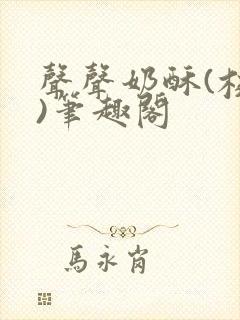 聲聲奶酥(校
)筆趣閣
馬永肖